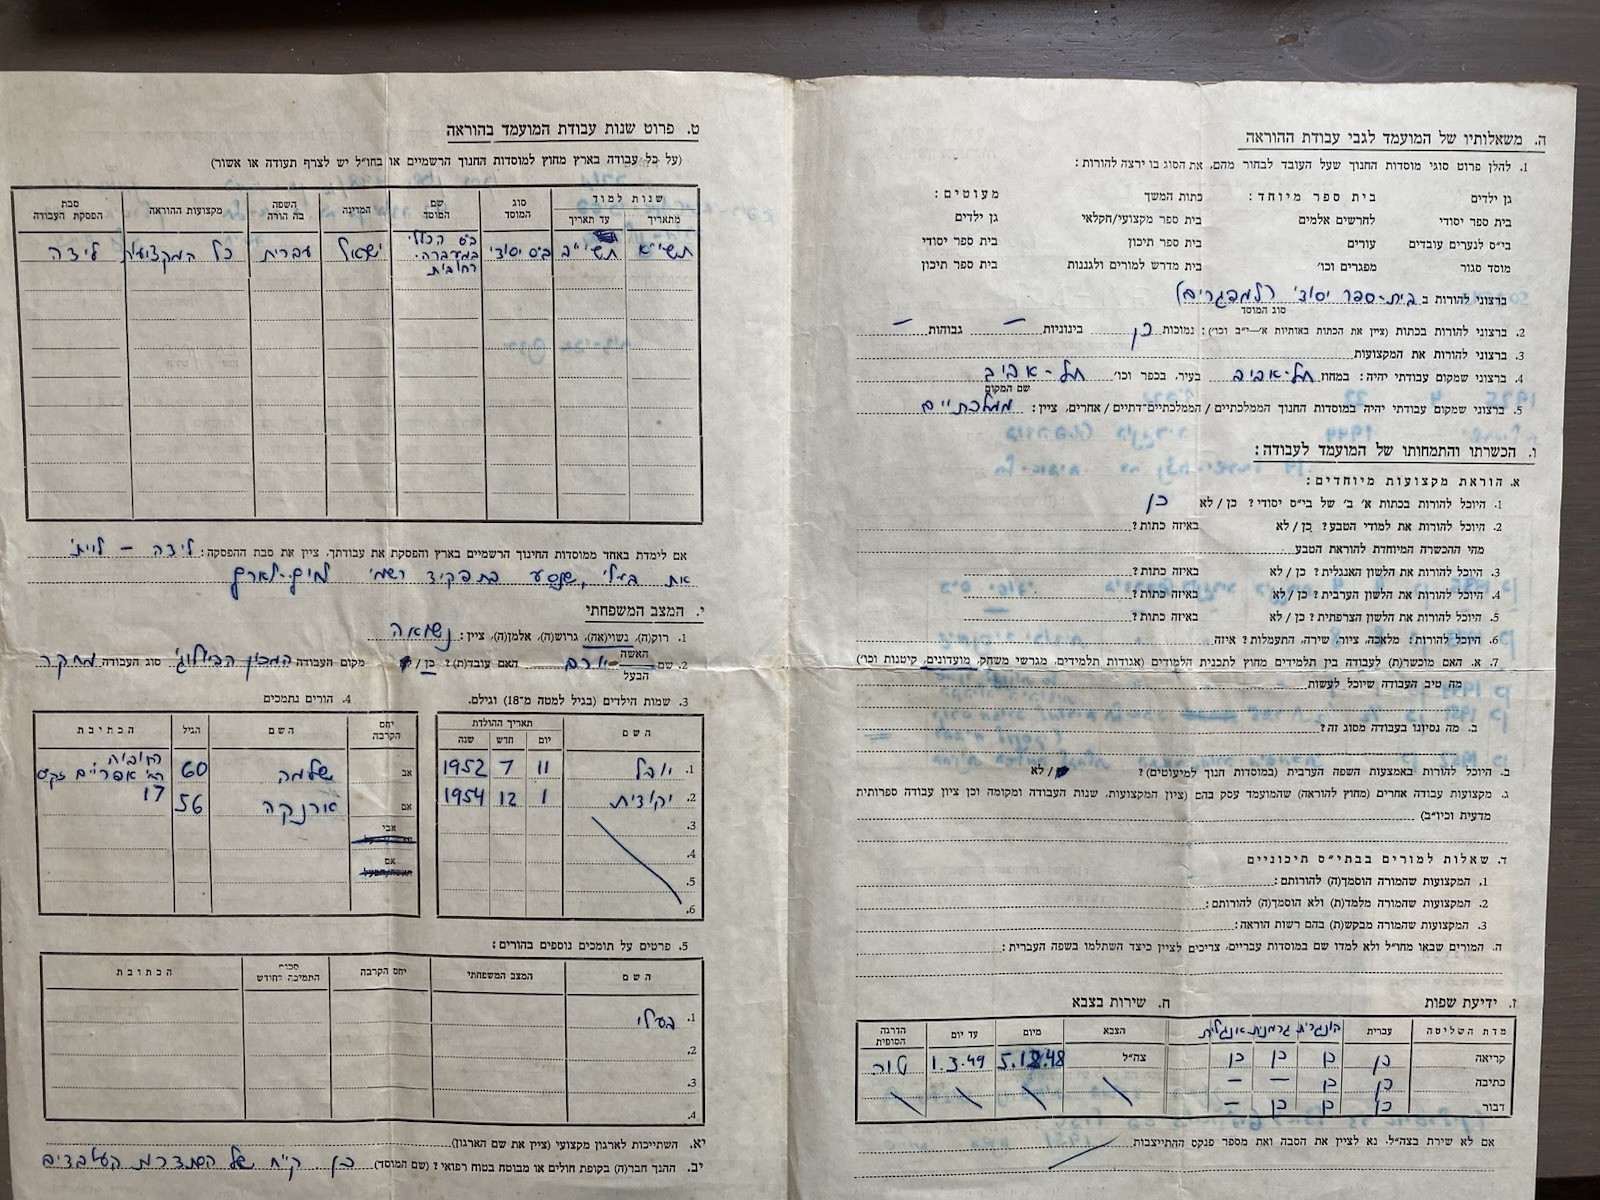 ה. משאלותיו של המועמד לגבי עבודת ההוראה
1. להלן פרוט סוגי מוסדות החנוך שעל העובד לבחור מהם, את הסוג בו ירצה להורות:
גן ילדים בית ספר מיוחד: כתות המשך מעוטים:
בית ספר יסודי לחרשים אלמים בית ספר מקצועי/חקלאי גן ילדים
בי״ס לנערים עובדים עורים בית ספר תיכון בית ספר יסודי
מוסד סגור מפגרים וכו׳ בית מדרש למורים ולגננות בית ספר תיכון
ברצוני להורות ב בית-ספר יסודי (למפגרים)
סוג המוסד
2. ברצוני להורות בכתות (ציין את הכתות באותיות א׳—י״ב וכו׳): נמוכות כן בינוניות — גבוהות —
3. ברצוני להורות את המקצועות
4. ברצוני שמקום עבודתי יהיה: במחוז תל-אביב בעיר, בכפר וכו׳ תל-אביב
שם המקום
5. ברצוני שמקום עבודתי יהיה במוסדות החנוך הממלכתיים / הממלכתיים־דתיים / אחרים, ציין: ממלכתיים
ו. הכשרתו והתמחותו של המועמד לעבודה:
א. הוראת מקצועות מיוחדים:
1. היוכל להורות בכתות א׳ ב׳ של בי״ס יסודי? כן / לא כן
2. היוכל להורות את למודי הטבע? כן / לא באיזה כתות?
מהי ההכשרה המיוחדת להוראת הטבע
3. היוכל להורות את הלשון האנגלית? כן / לא באיזה כתות?
4. היוכל להורות את הלשון הערבית? כן / לא באיזה כתות?
5. היוכל להורות את הלשון הצרפתית? כן / לא באיזה כתות?
6. היוכל להורות: מלאכה, ציור, שירה, התעמלות? איזה
7. א. האם מוכשר(ת) לעבודה בין תלמידים מחוץ לתכנית הלמודים (אגודות תלמידים, מגרשי משחק, מועדונים, קיטנות וכו׳)
מה טיב העבודה שיוכל לעשות
ב. מה נסיונו בעבודה מסוג זה?
ב. היוכל להורות באמצעות השפה הערבית (במוסדות חנוך למיעוטים)? / לא
ג. מקצועות עבודה אחרים (מחוץ להוראה) שהמועמד עסק בהם (ציון המקצועות, שנות העבודה ומקומה וכן ציון עבודה ספרותית
מדעית וכיו״ב)
ד. שאלות למורים בבתי״ס תיכוניים
1. המקצועות שהמורה הוסמך(ה) להורותם:
2. המקצועות שהמורה מלמד(ת) ולא הוסמך(ה) להורותם:
3. המקצועות שהמורה מבקש(ת) בהם רשות הוראה:
ה. המורים שבאו מחו״ל ולא למדו שם במוסדות עבריים, צריכים לציין כיצד השתלמו בשפה העברית:
ז. ידיעת שפות
מדת השליטה עברית הונגרית גרמנית אנגלית
קריאה כן כן כן כן
כתיבה כן כן — —
דבור כן כן כן —
ח. שירות בצבא
הצבא מיום עד יום הדרגה הסופית
צה״ל 5.12.48 1.3.49 טור
אם לא שירת בצה״ל, נא לציין את הסבה ואת מספר פנקס ההתייצבות
ט. פרוט שנות עבודת המועמד בהוראה
(על כל עבודה בארץ מחוץ למוסדות החנוך הרשמיים או בחו״ל יש לצרף תעודה או אשור)
שנות למוד סוג המוסד שם המוסד המדינה השפה בה הורה מקצועות ההוראה סבת הפסקת העבודה
מתאריך עד תאריך
תשי״א תשי״ב בי״ס יסודי בי״ס הכללי במעברה רחובות ישראל עברית כל המקצועות לידה
אם לימדת באחד ממוסדות החינוך הרשמיים בארץ והפסקת את עבודתך, ציין את סבת ההפסקה: לידה — לויתי
את בעלי, שנסע בתפקיד רשמי לחוץ-לארץ
י. המצב המשפחתי
1. רוק(ה), נשוי(אה), גרוש(ה), אלמן(ה), ציין: נשואה
2. שם האשה הבעל יורם האם עובד(ת)? כן / מקום העבודה המכון הביולוגי סוג העבודה מחקר
3. שמות הילדים (בגיל למטה מ־18) וגילם.
השם תאריך ההולדת
יום חדש שנה
1. יובל 11 7 1952
2. יהודית 1 12 1954
3.
4.
5.
6.
4. הורים נתמכים
יחס הקרבה השם הגיל הכתובת
אב שלמה 60 רחובות, רח׳ אפרים זקס 17
אם ארנקה 56
אבי
אם
5. פרטים על תומכים נוספים בהורים:
השם המצב המשפחתי יחס הקרבה סכום התמיכה לחודש הכתובת
1. בעלי
2.
3.
4.
יא. השתייכות לארגון מקצועי (ציין את שם הארגון)
יב. ההנך חבר(ה) בקופת חולים או מבוטח בטוח רפואי? (שם המוסד) כן קו״ח של הסתדרות העובדים